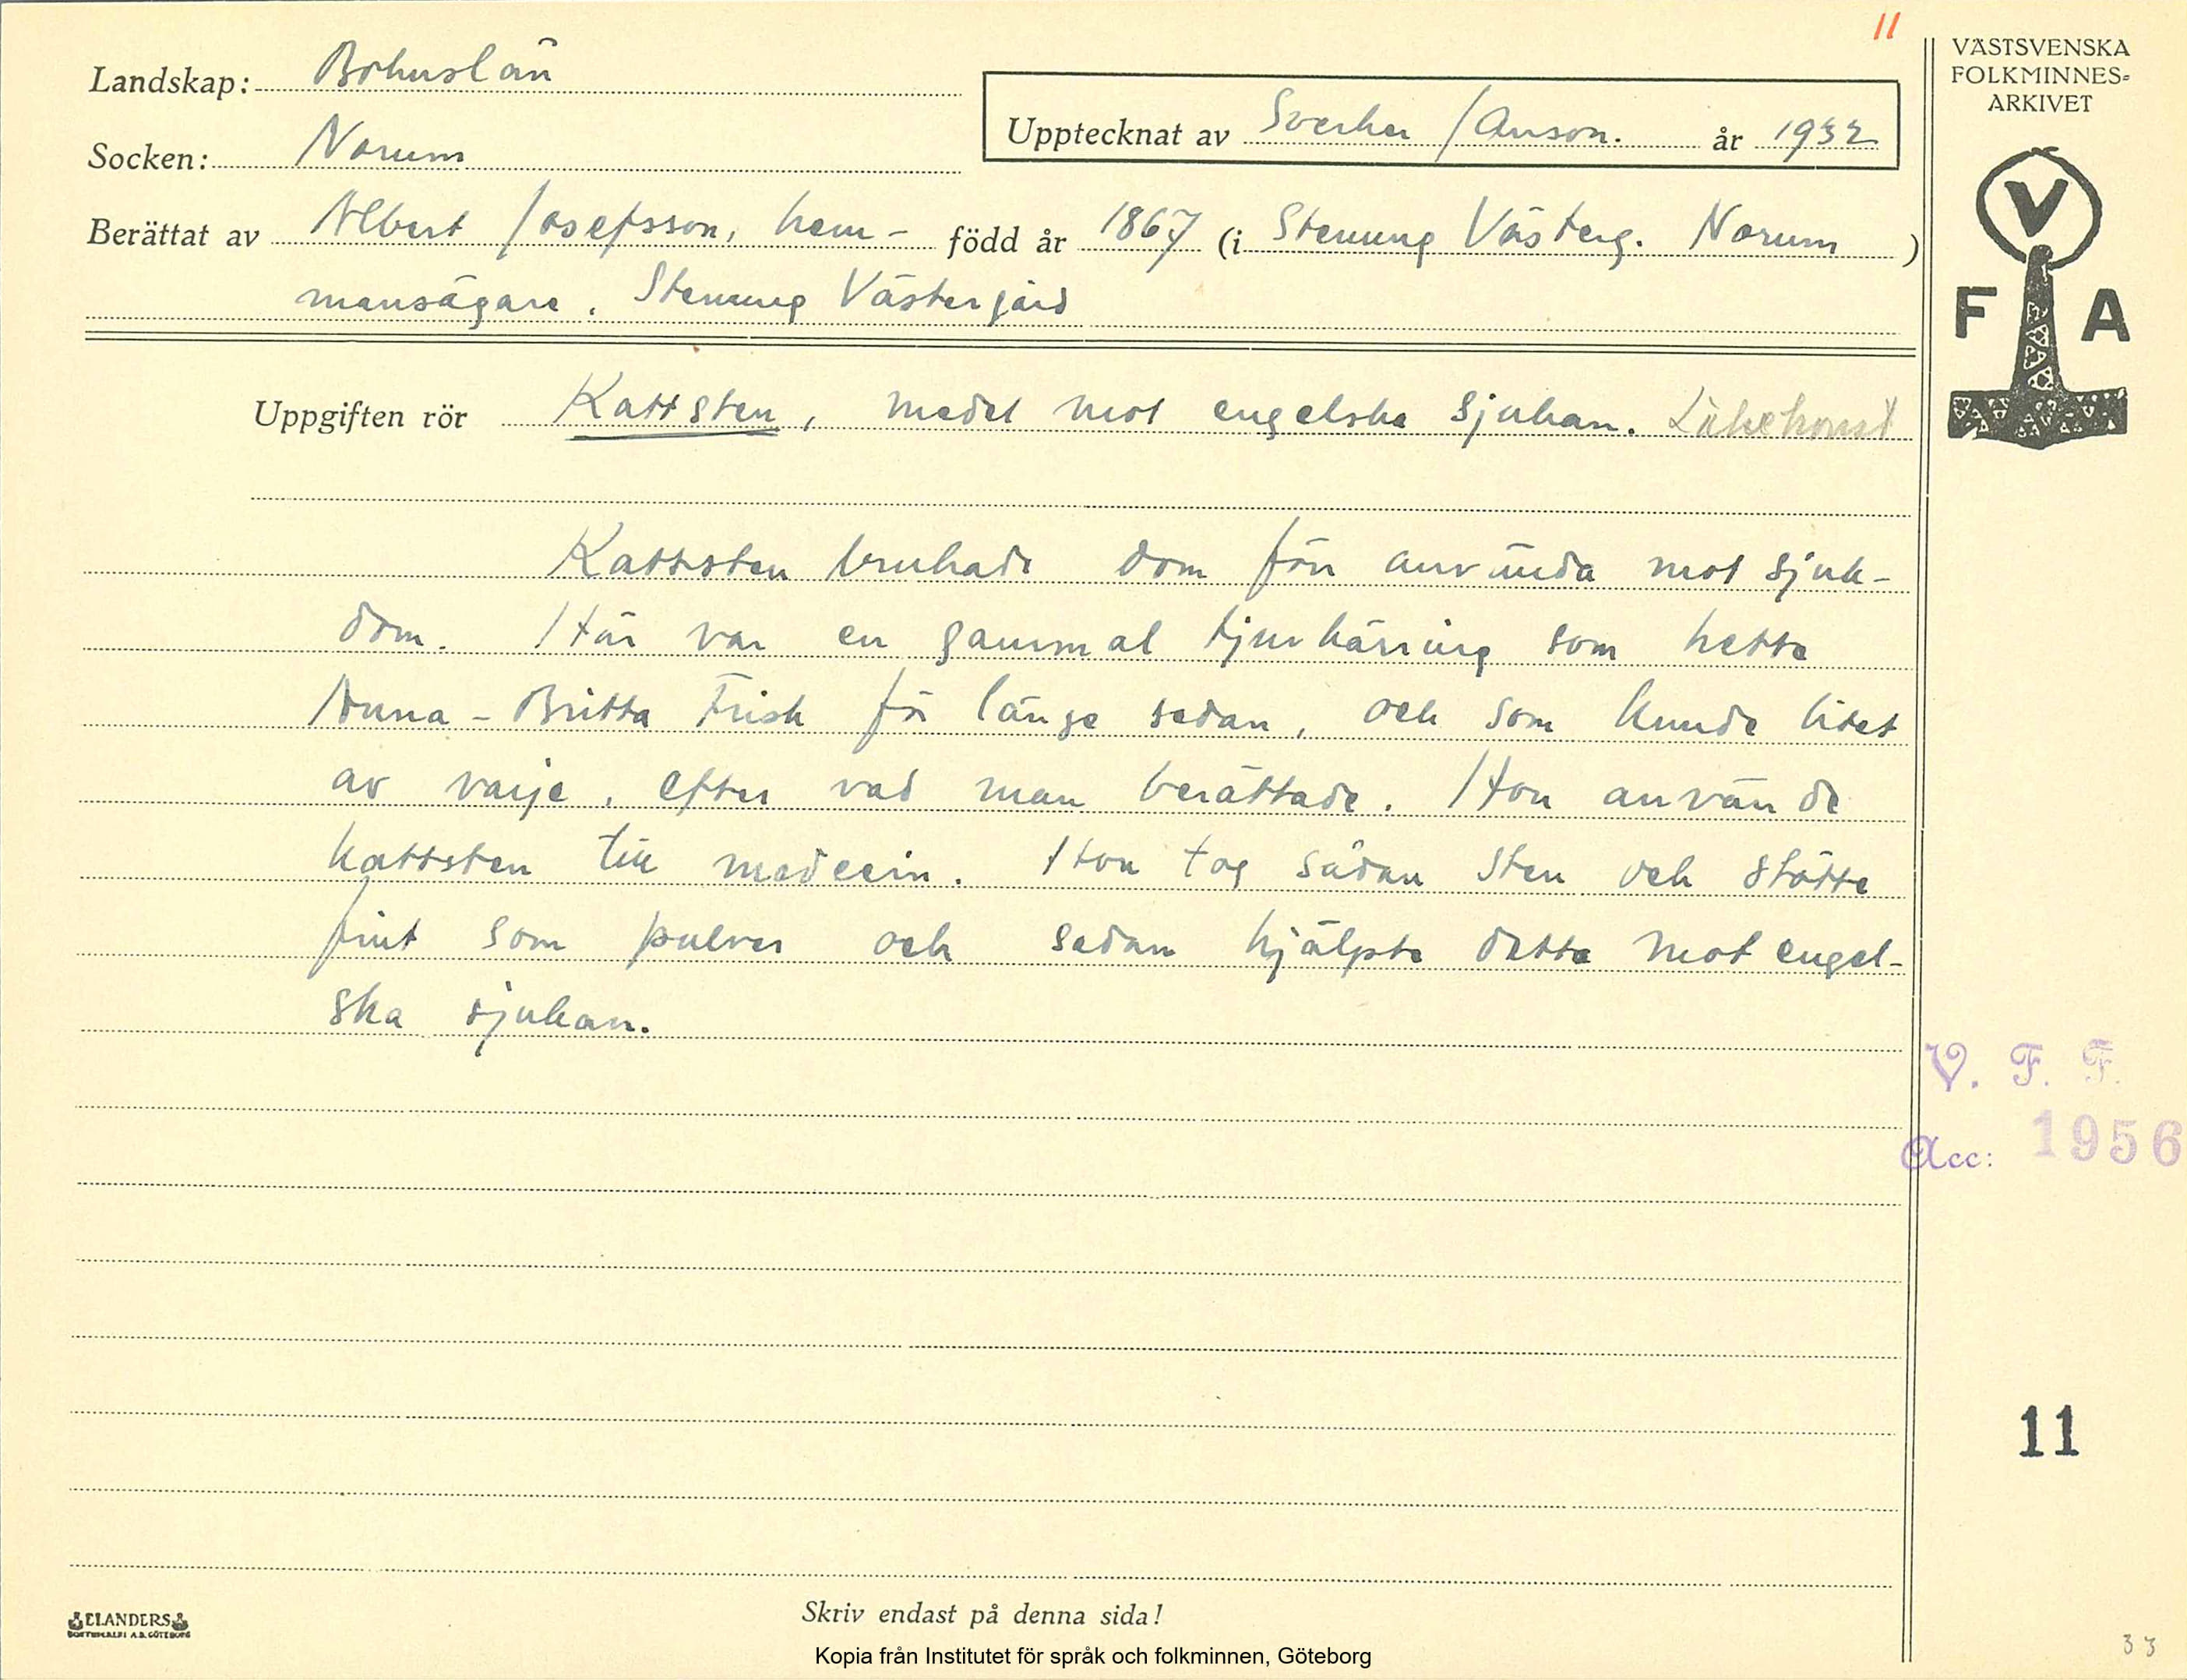 11
VÄSTSVENSKA
FOLKMINNES=
ARKIVET
Landskap: Bohuslän
Upptecknat av Sverker Janson. år 1932
Socken: Norum
Berättat av Albert Josefsson, hem- född år 1867 (i Stenung Västerg. Norum )
mansägare. Stenung Västergård
V
F A
Uppgiften rör Kattsten, medel mot engelska sjukan. Läkekonst
Kattsten brukade dom förr använda mot sjuk-
dom. Här var en gammal tjuvkärring som hette
Anna-Britta Frisk för länge sedan, och som kunde litet
av varje, efter vad man berättade. Hon använde
kattsten till medecin. Hon tog sådan sten och stötte
fint som pulver och sedan hjälpte detta mot engel-
ska sjukan.
V. F. F.
Acc: 1956
11
ELANDERS
BOKTRYCKERI A.B. GÖTEBORG
Skriv endast på denna sida!
Kopia från Institutet för språk och folkminnen, Göteborg